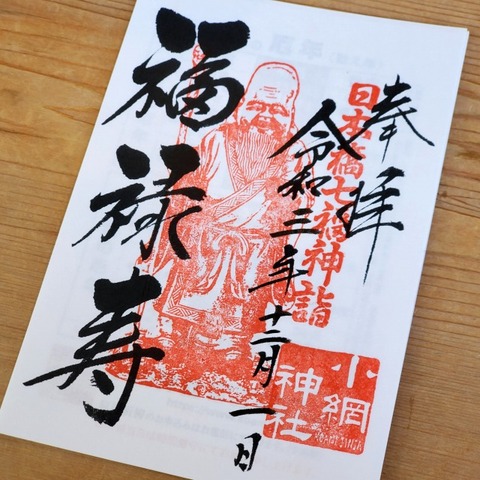 奉拝
日本橋七福神詣
令和三年十二月一日
福禄寿
小網
神社
KOAMI JINJA